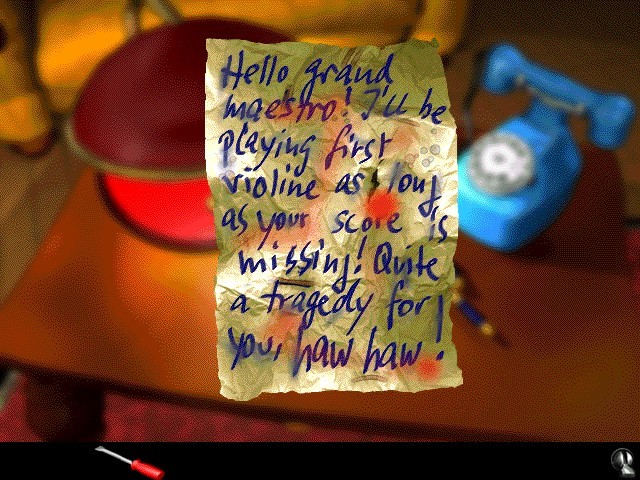 Hello grand
maestro! I'll be
playing first
violine as long
as your score is
missing! Quite
a tragedy for
you, haw haw!